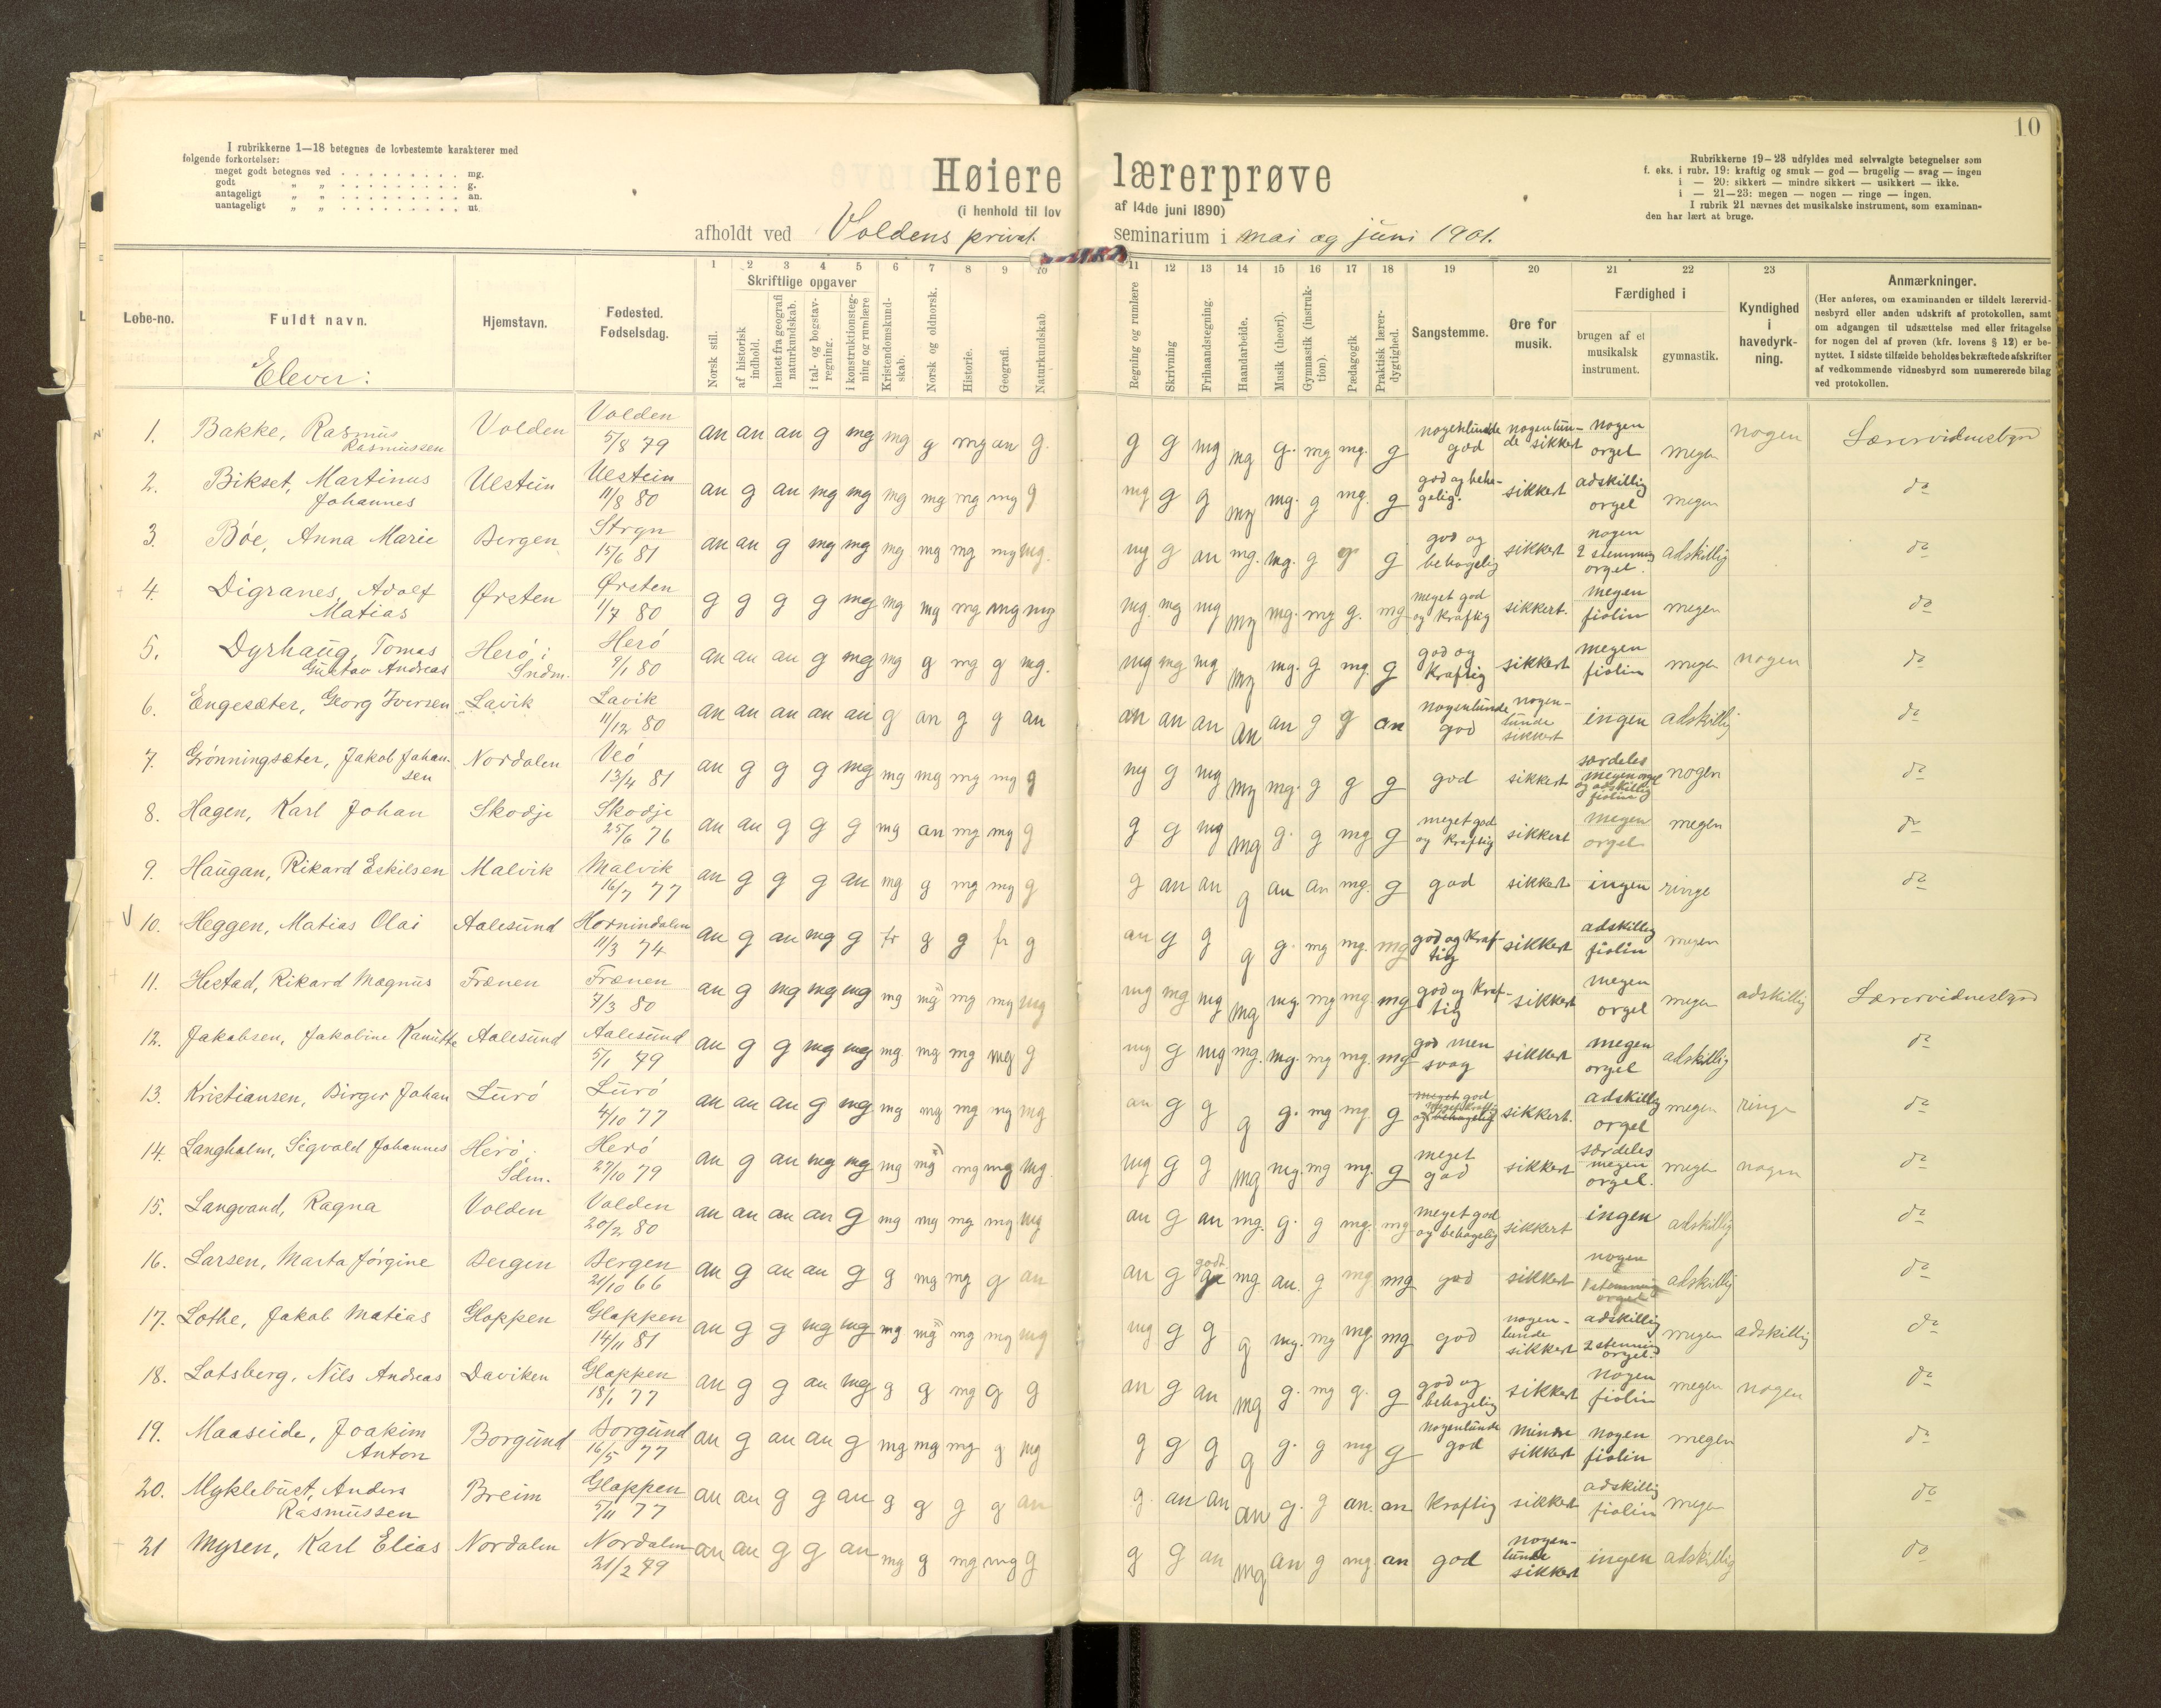 10
I rubrikkerne 1—18 betegnes de lovbestemte karakterer med
følgende forkortelser:
meget godt betegnes ved . . . . . . . . . . mg.
godt „ „ . . . . . . . . . . g.
antageligt „ „ . . . . . . . . . . an.
uantageligt „ „ . . . . . . . . . . ut.
Høiere lærerprøve
(i henhold til lov af 14de juni 1890)
afholdt ved Voldens privat. seminarium i mai og juni 1901.
Rubrikkerne 19—23 udfyldes med selvvalgte betegnelser som
f. eks. i rubr. 19: kraftig og smuk — god — brugelig — svag — ingen
i — 20: sikkert — mindre sikkert — usikkert — ikke.
i — 21—23: megen — nogen — ringe — ingen.
I rubrik 21 nævnes det musikalske instrument, som examinan-
den har lært at bruge.
Løbe-no.
Fuldt navn.
Hjemstavn.
Fødested.
Fødselsdag.
1 2 3 4 5 6 7 8 9 10 11 12 13 14 15 16 17 18 19 20 21 22 23
Norsk stil.
Skriftlige opgaver
af historisk indhold.
hentet fra geografi naturkundskab.
i tal- og bogstav-regning.
i konstruktionsteg-ning og rumlære
Kristendomskund-skab.
Norsk og oldnorsk.
Historie.
Geografi.
Naturkundskab.
Regning og rumlære
Skrivning
Frihaandstegning.
Haandarbeide.
Musik (theori).
Gymnastik (instruk-tion).
Pædagogik
Praktisk lærer-dygtighed.
Sangstemme.
Øre for musik.
Færdighed i
brugen af et musikalsk instrument.
gymnastik.
Kyndighed i havedyrk-ning.
Anmærkninger.
(Her anføres, om examinanden er tildelt lærervid-
nesbyrd eller anden udskrift af protokollen, samt
om adgangen til udsættelse med eller fritagelse
for nogen del af prøven (kfr. lovens § 12) er be-
nyttet. I sidste tilfælde beholdes bekræftede afskrifter
af vedkommende vidnesbyrd som numererede bilag
ved protokollen.
Elever:
1. Bakke, Rasmus Rasmussen Volden Volden 5/8 79 an an an g mg mg g mg an g. g g mg mg g. mg mg. g nogenlunde god nogenlun-de sikkert nogen orgel megen nogen Lærervidnesbyrd
2. Bikset, Martinus Johannes Ulstein Ulstein 11/8 80 an g an mg mg mg mg mg mg g mg g g mg mg. g mg. g god og beha-gelig. sikkert adskillig orgel megen do
3. Bøe, Anna Marie Bergen Stryn 15/6 81 an an g mg mg mg mg mg mg mg. mg g an mg. mg. g g g god og behagelig sikkert nogen 2 stemmig orgel. adskillig do
4. Digranes, Adolf Matias Ørsten Ørsten 1/7 80 g g g g mg mg mg mg mg mg mg. mg mg mg mg. mg g. mg meget god og kraftig sikkert. megen fiolin megen do
5. Dyrhaug, Tomas Gustav Andreas Herø i Sndm. Herø 9/1 80 an an an g mg mg g mg g mg. mg mg mg mg mg. g mg. g god og kraftig sikkert megen fiolin megen nogen do
6. Engesæter, Georg Iversen Lavik Lavik 11/12 80 an an an an an g an g g an an an an an an g g an nogenlunde god nogen-lunde sikkert ingen adskillig do
7. Grønningsæter, Jakob Johan-sen Nordalen Veø 13/4 81 an g g g mg mg mg mg mg g mg g mg mg mg. g g g god sikkert særdeles megen orgel og adskillig fiolin nogen do
8. Hagen, Karl Johan Skodje Skodje 25/6 76 an an g g g mg an mg mg g g g mg mg g. g mg g meget god og kraftig sikkert megen orgel megen do
9. Haugan, Rikard Eskilsen Malvik Malvik 16/7 77 an g g g an mg g mg mg g g an an g an an mg. g god sikkert ingen ringe do
10. Heggen, Matias Olai Aalesund Hornindalen 11/3 74 an g an mg g fr g g fr g an g g g g. mg mg. mg god og kraf-tig sikkert adskillig fiolin megen
11. Hestad, Rikard Magnus Frænen Frænen 7/3 80 an g mg mg mg mg mg mg mg mg mg mg mg mg mg. mg mg mg god og kraf-tig sikkert megen orgel megen adskillig Lærervidnesbyrd
12. Jakobsen, Jakobine Kanutte Aalesund Aalesund 5/1 79 an g g mg mg mg. mg mg mg g mg g mg mg. mg. mg mg. mg god men svag sikkert megen orgel adskillig do
13. Kristiansen, Birger Johan Lurø Lurø 4/10 77 an an an g mg mg mg mg mg mg an g g g g. mg mg. g meget god og behagelig sikkert. adskillig orgel megen ringe do
14. Langholm, Sigvald Johannes Herø i Sdm. Herø 27/10 79 an g an mg mg mg mg mg mg mg. mg g g mg mg. mg mg. g meget god sikkert særdeles megen orgel. megen nogen do
15. Langvand, Ragna Volden Volden 20/2 80 an an an an g mg mg mg mg mg an g an mg. g. g mg. mg meget god og behagelig sikkert ingen adskillig do
16. Larsen, Marta Jørgine Bergen Bergen 21/10 66 an g an an g g mg mg g an an g godt g mg. an. g mg mg god sikkert nogen 1 stemmig orgel adskillig do
17. Lothe, Jakob Matias Gloppen Gloppen 14/11 81 an g g mg mg mg mg mg mg mg mg g g g mg. mg mg mg god nogen-lunde sikkert adskillig 2 stemmig orgel. megen adskillig do
18. Lotsberg, Nils Andreas Daviken Gloppen 18/1 77 an g g an mg g g mg g g an g an mg g. mg g. g god og behagelig sikkert nogen fiolin megen nogen do
19. Maaseide, Joakim Anton Borgund Borgund 16/5 77 an g an an g mg mg mg g mg g g g g g. g mg g nogenlunde god mindre sikkert nogen fiolin megen do
20. Myklebust, Anders Rasmussen Breim Gloppen 5/11 77 an an g g an g g g g an g. an an an g. g an. an kraftig sikkert adskillig fiolin megen do
21 Myren, Karl Elias Nordalen Nordalen 21/2 79 an an g g an mg g mg mg g g g an mg an g mg. an god nogen-lunde sikkert ingen adskillig do